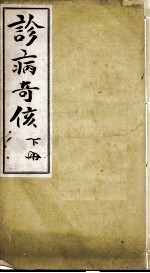 診病奇侅
下冊